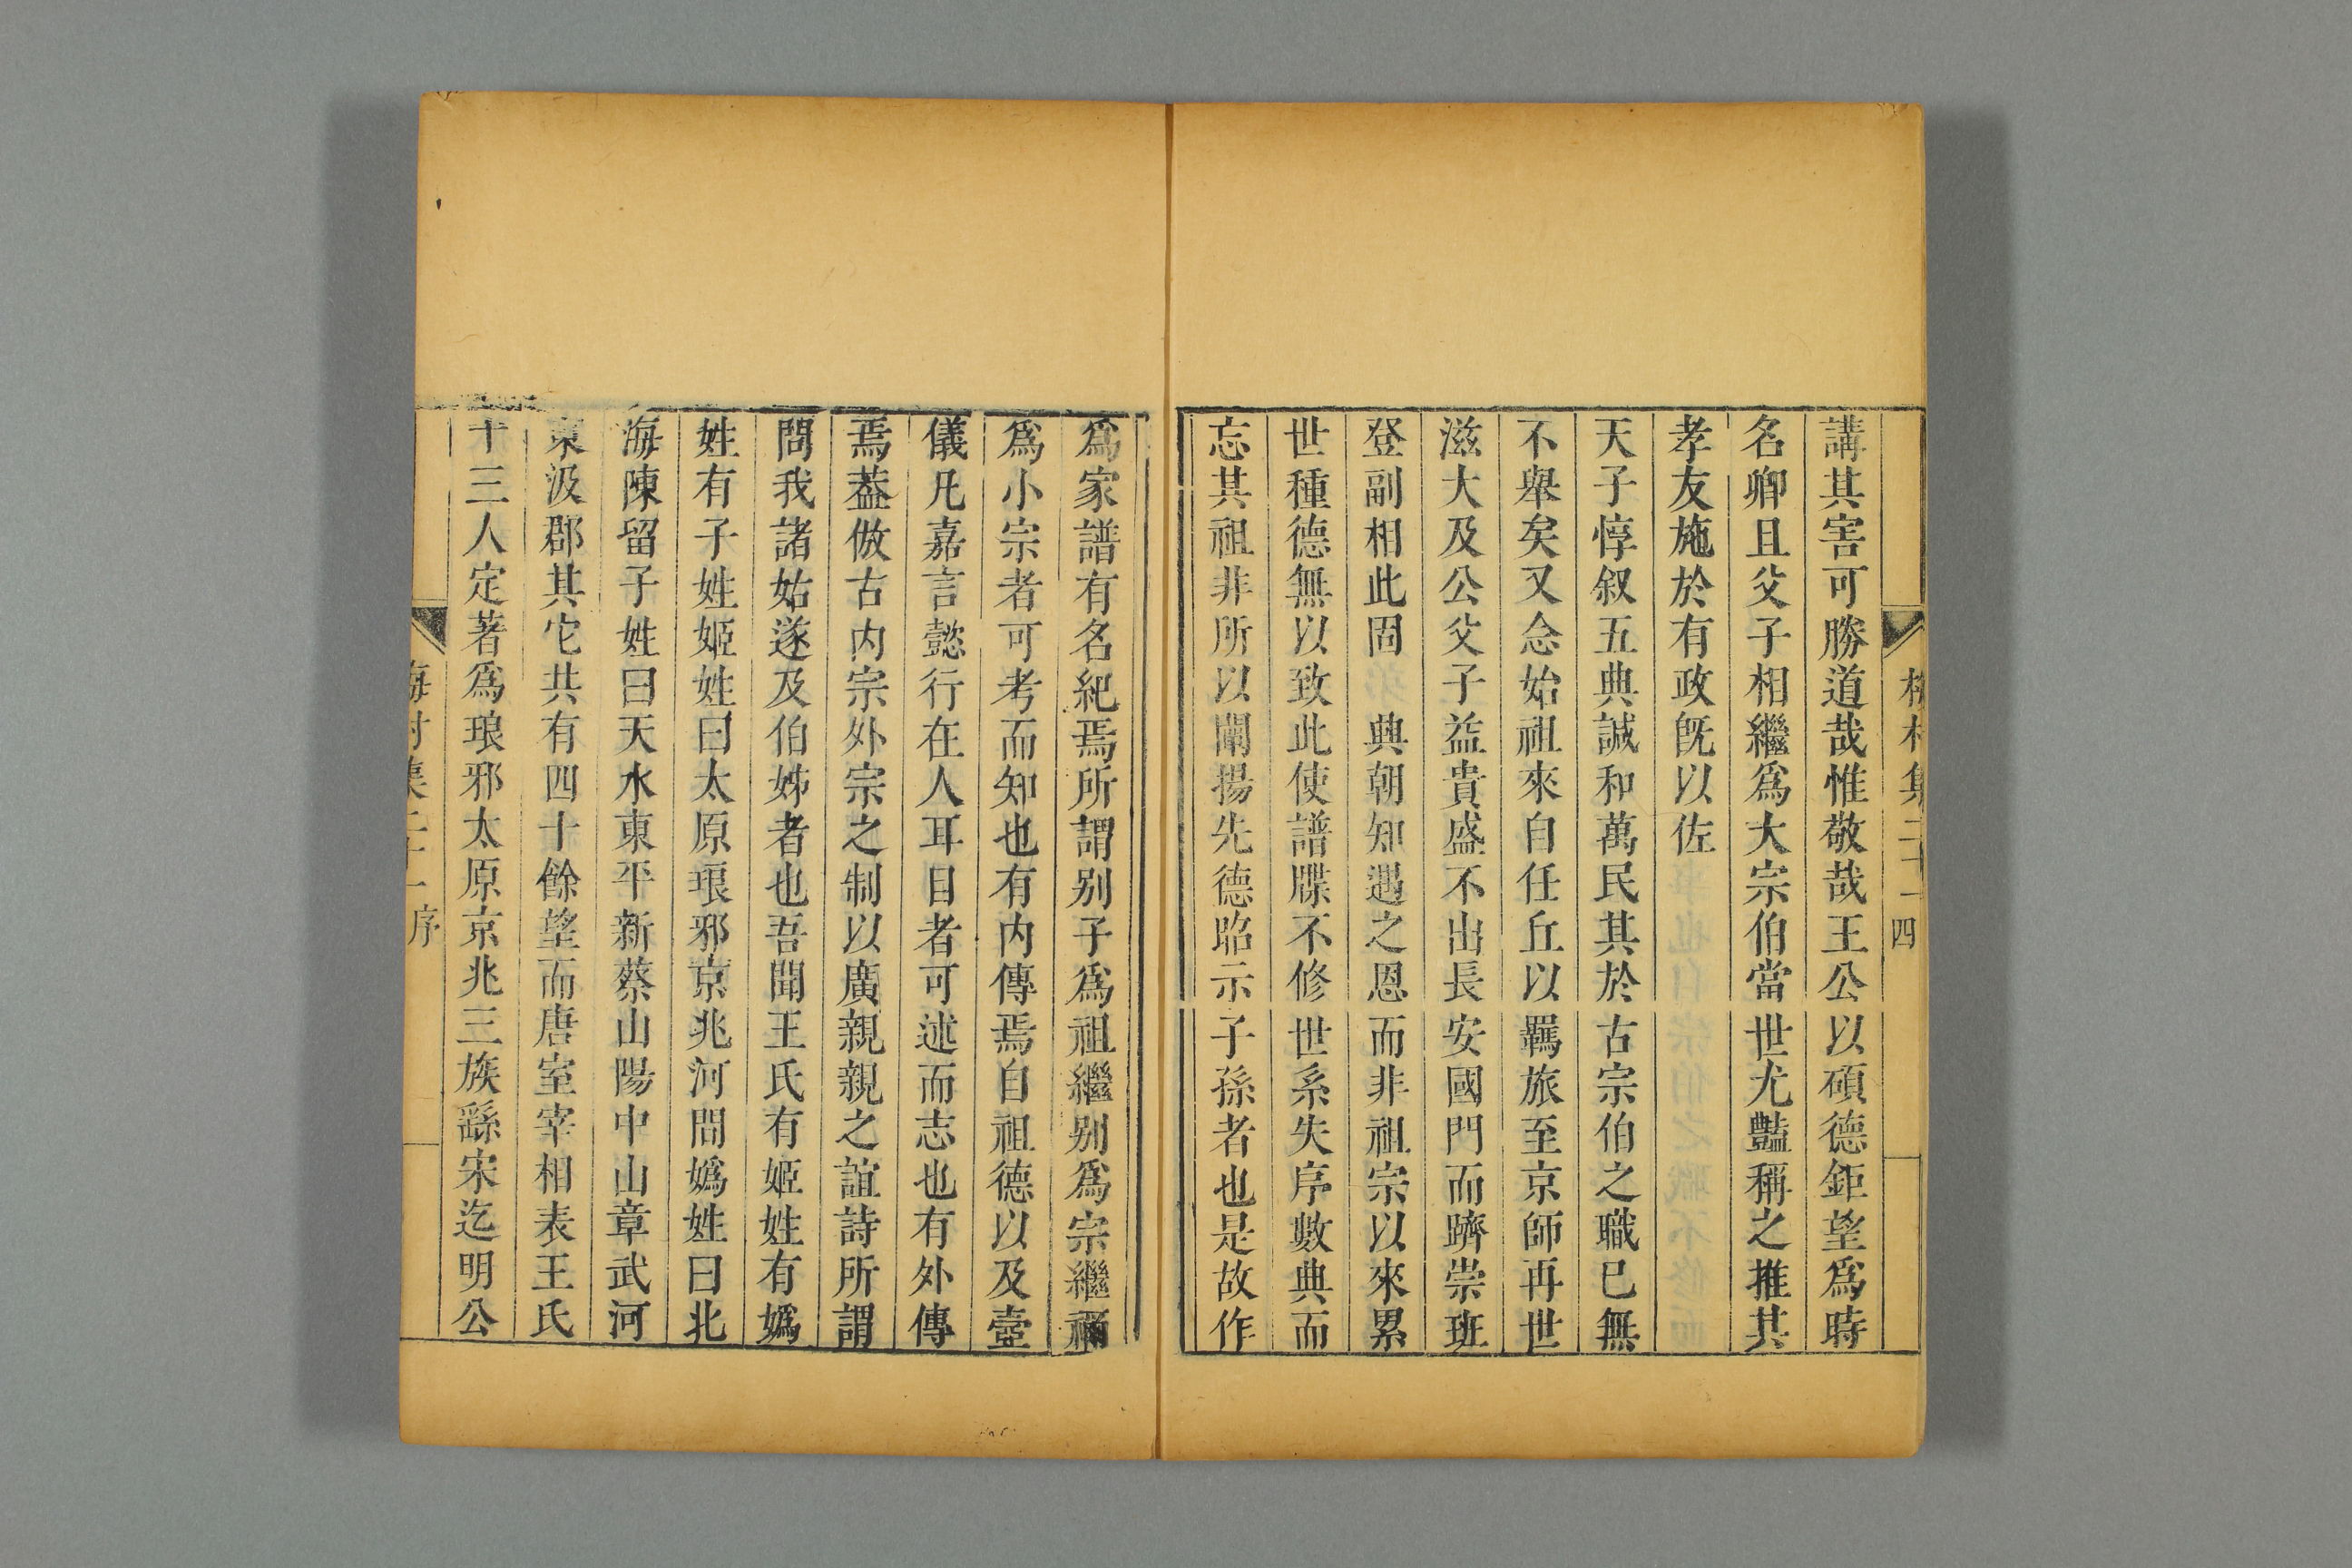 講其害可勝道哉惟敬哉王公以碩德鉅望爲時
名卿且父子相繼爲大宗伯當世尤豔稱之推其
孝友施於有政旣以佐
天子惇叙五典諴和萬民其於古宗伯之職已無
不舉矣又念始祖來自任丘以羈旅至京師再世
滋大及公父子益貴盛不出長安國門而躋崇班
登副相此固典朝知遇之恩而非祖宗以來累
世種德無以致此使譜牒不修世系失序數典而
忘其祖非所以闡揚先德昭示子孫者也是故作
爲家譜有名紀焉所謂别子爲祖繼别爲宗繼禰
爲小宗者可考而知也有内傳焉自祖德以及壼
儀凡嘉言懿行在人耳目者可述而志也有外傳
焉葢倣古内宗外宗之制以廣親親之誼詩所謂
問我諸姑遂及伯姊者也吾聞王氏有姬姓有嬀
姓有子姓姬姓曰太原琅邪京兆河間嬀姓曰北
海陳留子姓曰天水東平新蔡山陽中山章武河
東汲郡其它共有四十餘望而唐室宰相表王氏
十三人定著爲琅邪太原京兆三族繇宋迄明公
村集二十一
四
集二十一序